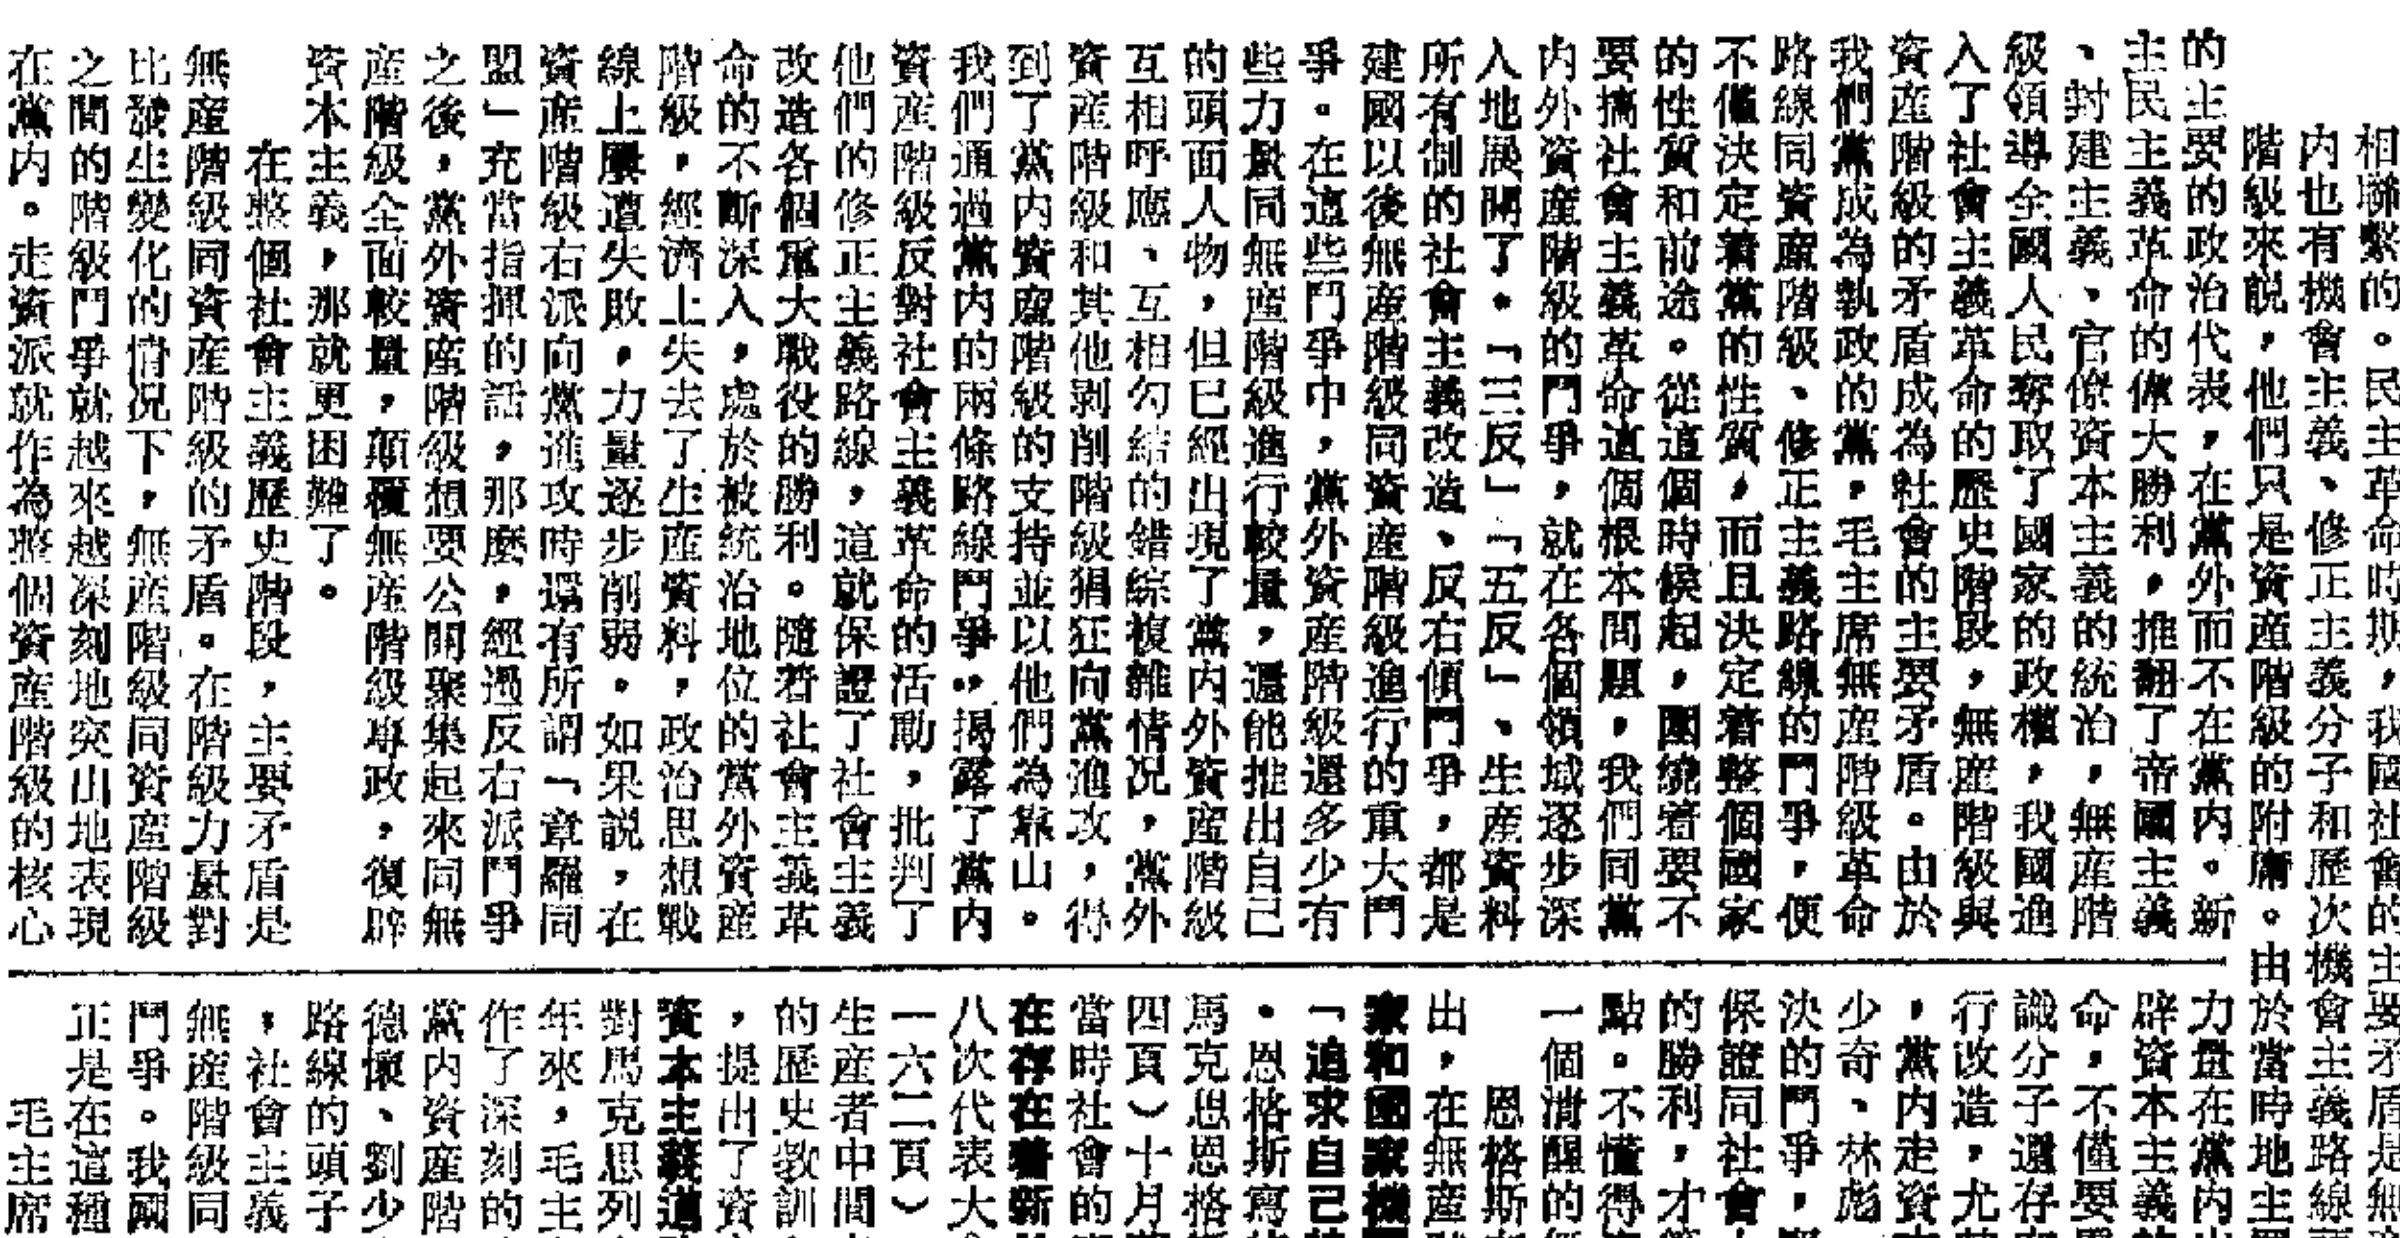 相聯繫的。民主革命時期，我國社會的主要矛盾是無
内也有機會主義、修正主義分子和歷次機會主義路線
階級來説，他們只是資産階級的附庸。由於當時地主買
的主要的政治代表，在黨外而不在黨内。新
主民主義革命的偉大勝利，推翻了帝國主義
、封建主義、官僚資本主義的統治，無産階
級領導全國人民奪取了國家的政權，我國進
入了社會主義革命的歷史階段，無産階級與
資産階級的矛盾成為社會的主要矛盾。由於
我們黨成為執政的黨，毛主席無産階級革命
路線同資産階級、修正主義路線的鬥爭，便
不僅決定着黨的性質，而且決定着整個國家
的性質和前途。從這個時候起，圍繞着要不
要搞社會主義革命這個根本問題，我們同黨
内外資産階級的鬥爭，就在各個領域逐步深
入地展開了。「三反」「五反」、生産資料
所有制的社會主義改造、反右傾鬥爭，都是
建國以後無産階級同資産階級進行的重大鬥
爭。在這些鬥爭中，黨外資産階級還多少有
些力量同無産階級進行較量，還能推出自己
的頭面人物，但已經出現了黨内外資産階級
互相呼應、互相勾結的錯綜複雜情况，黨外
資産階級和其他剥削階級猖狂向黨進攻，得
到了黨内資産階級的支持並以他們為靠山。
我們通過黨内的兩條路線鬥爭，揭露了黨内
資産階級反對社會主義革命的活動，批判了
他們的修正主義路線，這就保證了社會主義
改造各個重大戰役的勝利。隨着社會主義革
命的不斷深入，處於被統治地位的黨外資産
階級，經濟上失去了生産資料，政治思想戰
線上屢遭失敗，力量逐步削弱。如果説，在
資産階級右派向黨進攻時還有所謂「章羅同
盟」充當指揮的話，那麽，經過反右派鬥爭
之後，黨外資産階級想要公開聚集起來同無
産階級全面較量，顛覆無産階級專政，復辟
資本主義，那就更困難了。
在整個社會主義歷史階段，主要矛盾是
無産階級同資産階級的矛盾。在階級力量對
比發生變化的情况下，無産階級同資産階級
之間的階級鬥爭就越來越深刻地突出地表現
在黨内。走資派就作為整個資産階級的核心
力量在黨内
辟資本主義
命，不僅要
識分子還存
行改造，尤
，黨内走資
少奇、林彪
決的鬥爭，
保證同社會
的勝利，才
點。不懂得
一個清醒的
恩格斯
出，在無産
家和國家機
「追求自己
・恩格斯寫
馬克思恩格
四頁）十月
當時社會的
在存在着新
八次代表大
一六二頁）
生産者中間
的歷史教訓
，提出了資
資本主義道
對馬克思列
年來，毛主
作了深刻的
黨内資産階
德懷、劉少
路線的頭子
，社會主義
無産階級同
鬥爭。我國
正是在這種
毛主席